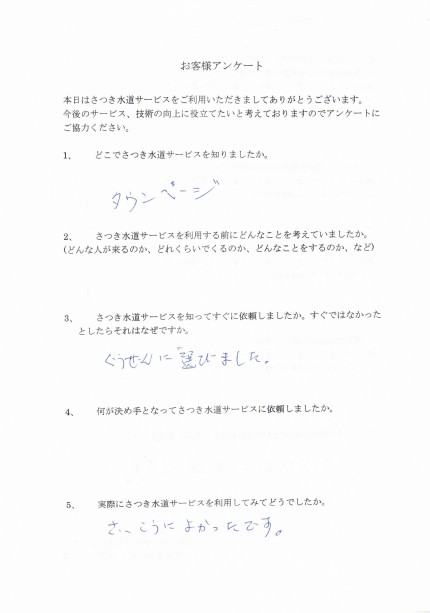 お客様アンケート
本日はさつき水道サービスをご利用いただきましてありがとうございます。
今後のサービス、技術の向上に役立てたいと考えておりますのでアンケートに
ご協力ください。
1、 どこでさつき水道サービスを知りましたか。
タウンページ
2、 さつき水道サービスを利用する前にどんなことを考えていましたか。
(どんな人が来るのか、どれくらいでくるのか、どんなことをするのか、など)
3、 さつき水道サービスを知ってすぐに依頼しましたか。すぐではなかった
としたらそれはなぜですか。
ぐうぜんに選びました。
4、 何が決め手となってさつき水道サービスに依頼しましたか。
5、 実際にさつき水道サービスを利用してみてどうでしたか。
さいこうによかったです。